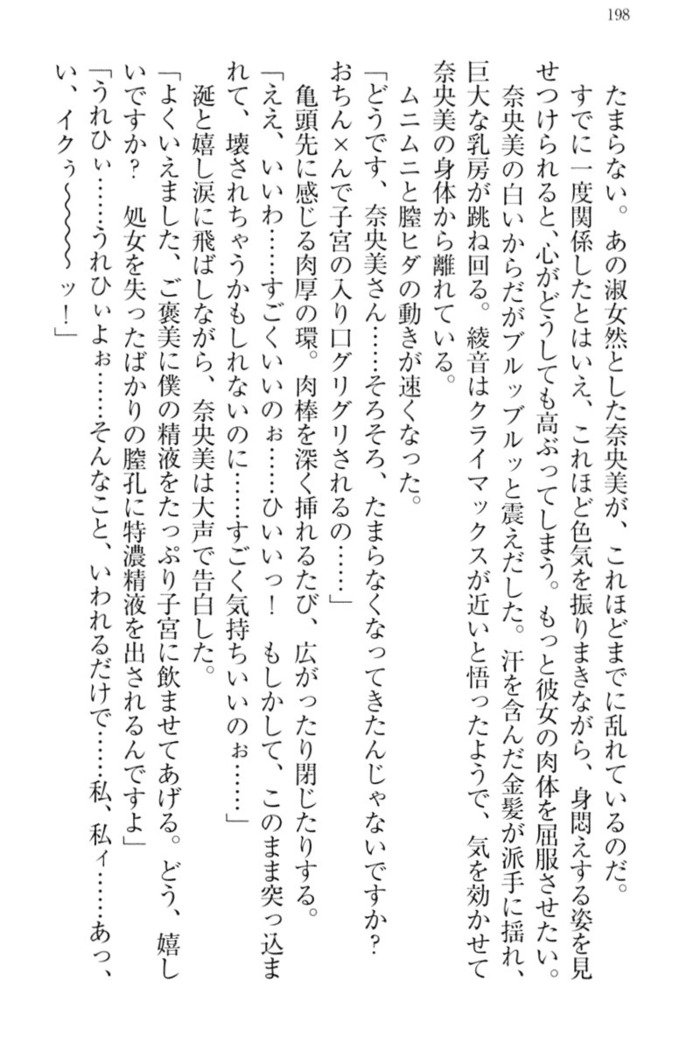 198
たまらない。あの淑女然とした奈央美が、これほどまでに乱れているのだ。
すでに一度関係したとはいえ、これほど色気を振りまきながら、身悶えする姿を見
せつけられると、心がどうしても高ぶってしまう。もっと彼女の肉体を屈服させたい。
奈央美の白いからだがブルッブルッと震えだした。汗を含んだ金髪が派手に揺れ、
巨大な乳房が跳ね回る。綾音はクライマックスが近いと悟ったようで、気を効かせて
奈央美の身体から離れている。
ムニムニと膣ヒダの動きが速くなった。
「どうです、奈央美さん……そろそろ、たまらなくなってきたんじゃないですか?
おちん×んで子宮の入り口グリグリされるの……」
亀頭先に感じる肉厚の環。肉棒を深く挿れるたび、広がったり閉じたりする。
「ええ、いいわ……すごくいいのぉ……ひいいっ! もしかして、このまま突っ込ま
れて、壊されちゃうかもしれないのに……すごく気持ちいいのぉ……」
涎と嬉し涙に飛ばしながら、奈央美は大声で告白した。
「よくいえました、ご褒美に僕の精液をたっぷり子宮に飲ませてあげる。どう、嬉し
いですか? 処女を失ったばかりの膣孔に特濃精液を出されるんですよ」
「うれひぃ……うれひぃよぉ……そんなこと、いわれるだけで……私、私ィ……あっ、
い、イクぅ〜〜〜〜ッ!」